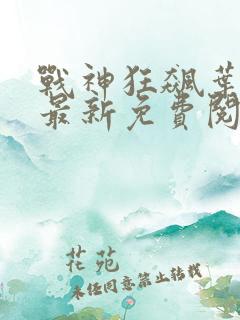 戰神狂飆葉
最新免費閱
花苑
未經同意禁止轉載